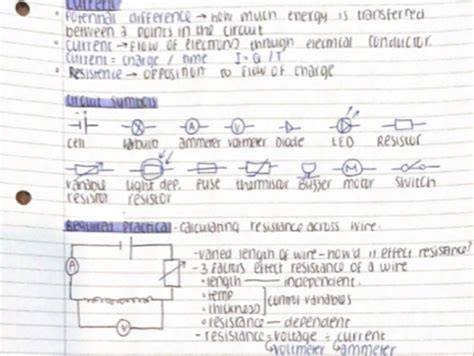 Current
• Potential difference → how much energy is transferred
between 2 points in the circuit
• Current → Flow of electrons through electrical conductor.
Current = charge / time I = Q / T
• Resistence → opposition to flow of charge
Circuit symbols
cell bulb ammeter voltmeter Diode LED Resistor
variable light dep. Fuse thermistor Buzzer Motor switch
resistor resistor
Required Practical - calculating resistance across wire.
- varied length of wire - how'd it effect resistance?
- 3 factors effect resistance of a wire
• length — independent.
• temp
• thickness control variables
• resistance — dependent
- resistance = voltage ÷ current
voltmeter ammeter
A
V